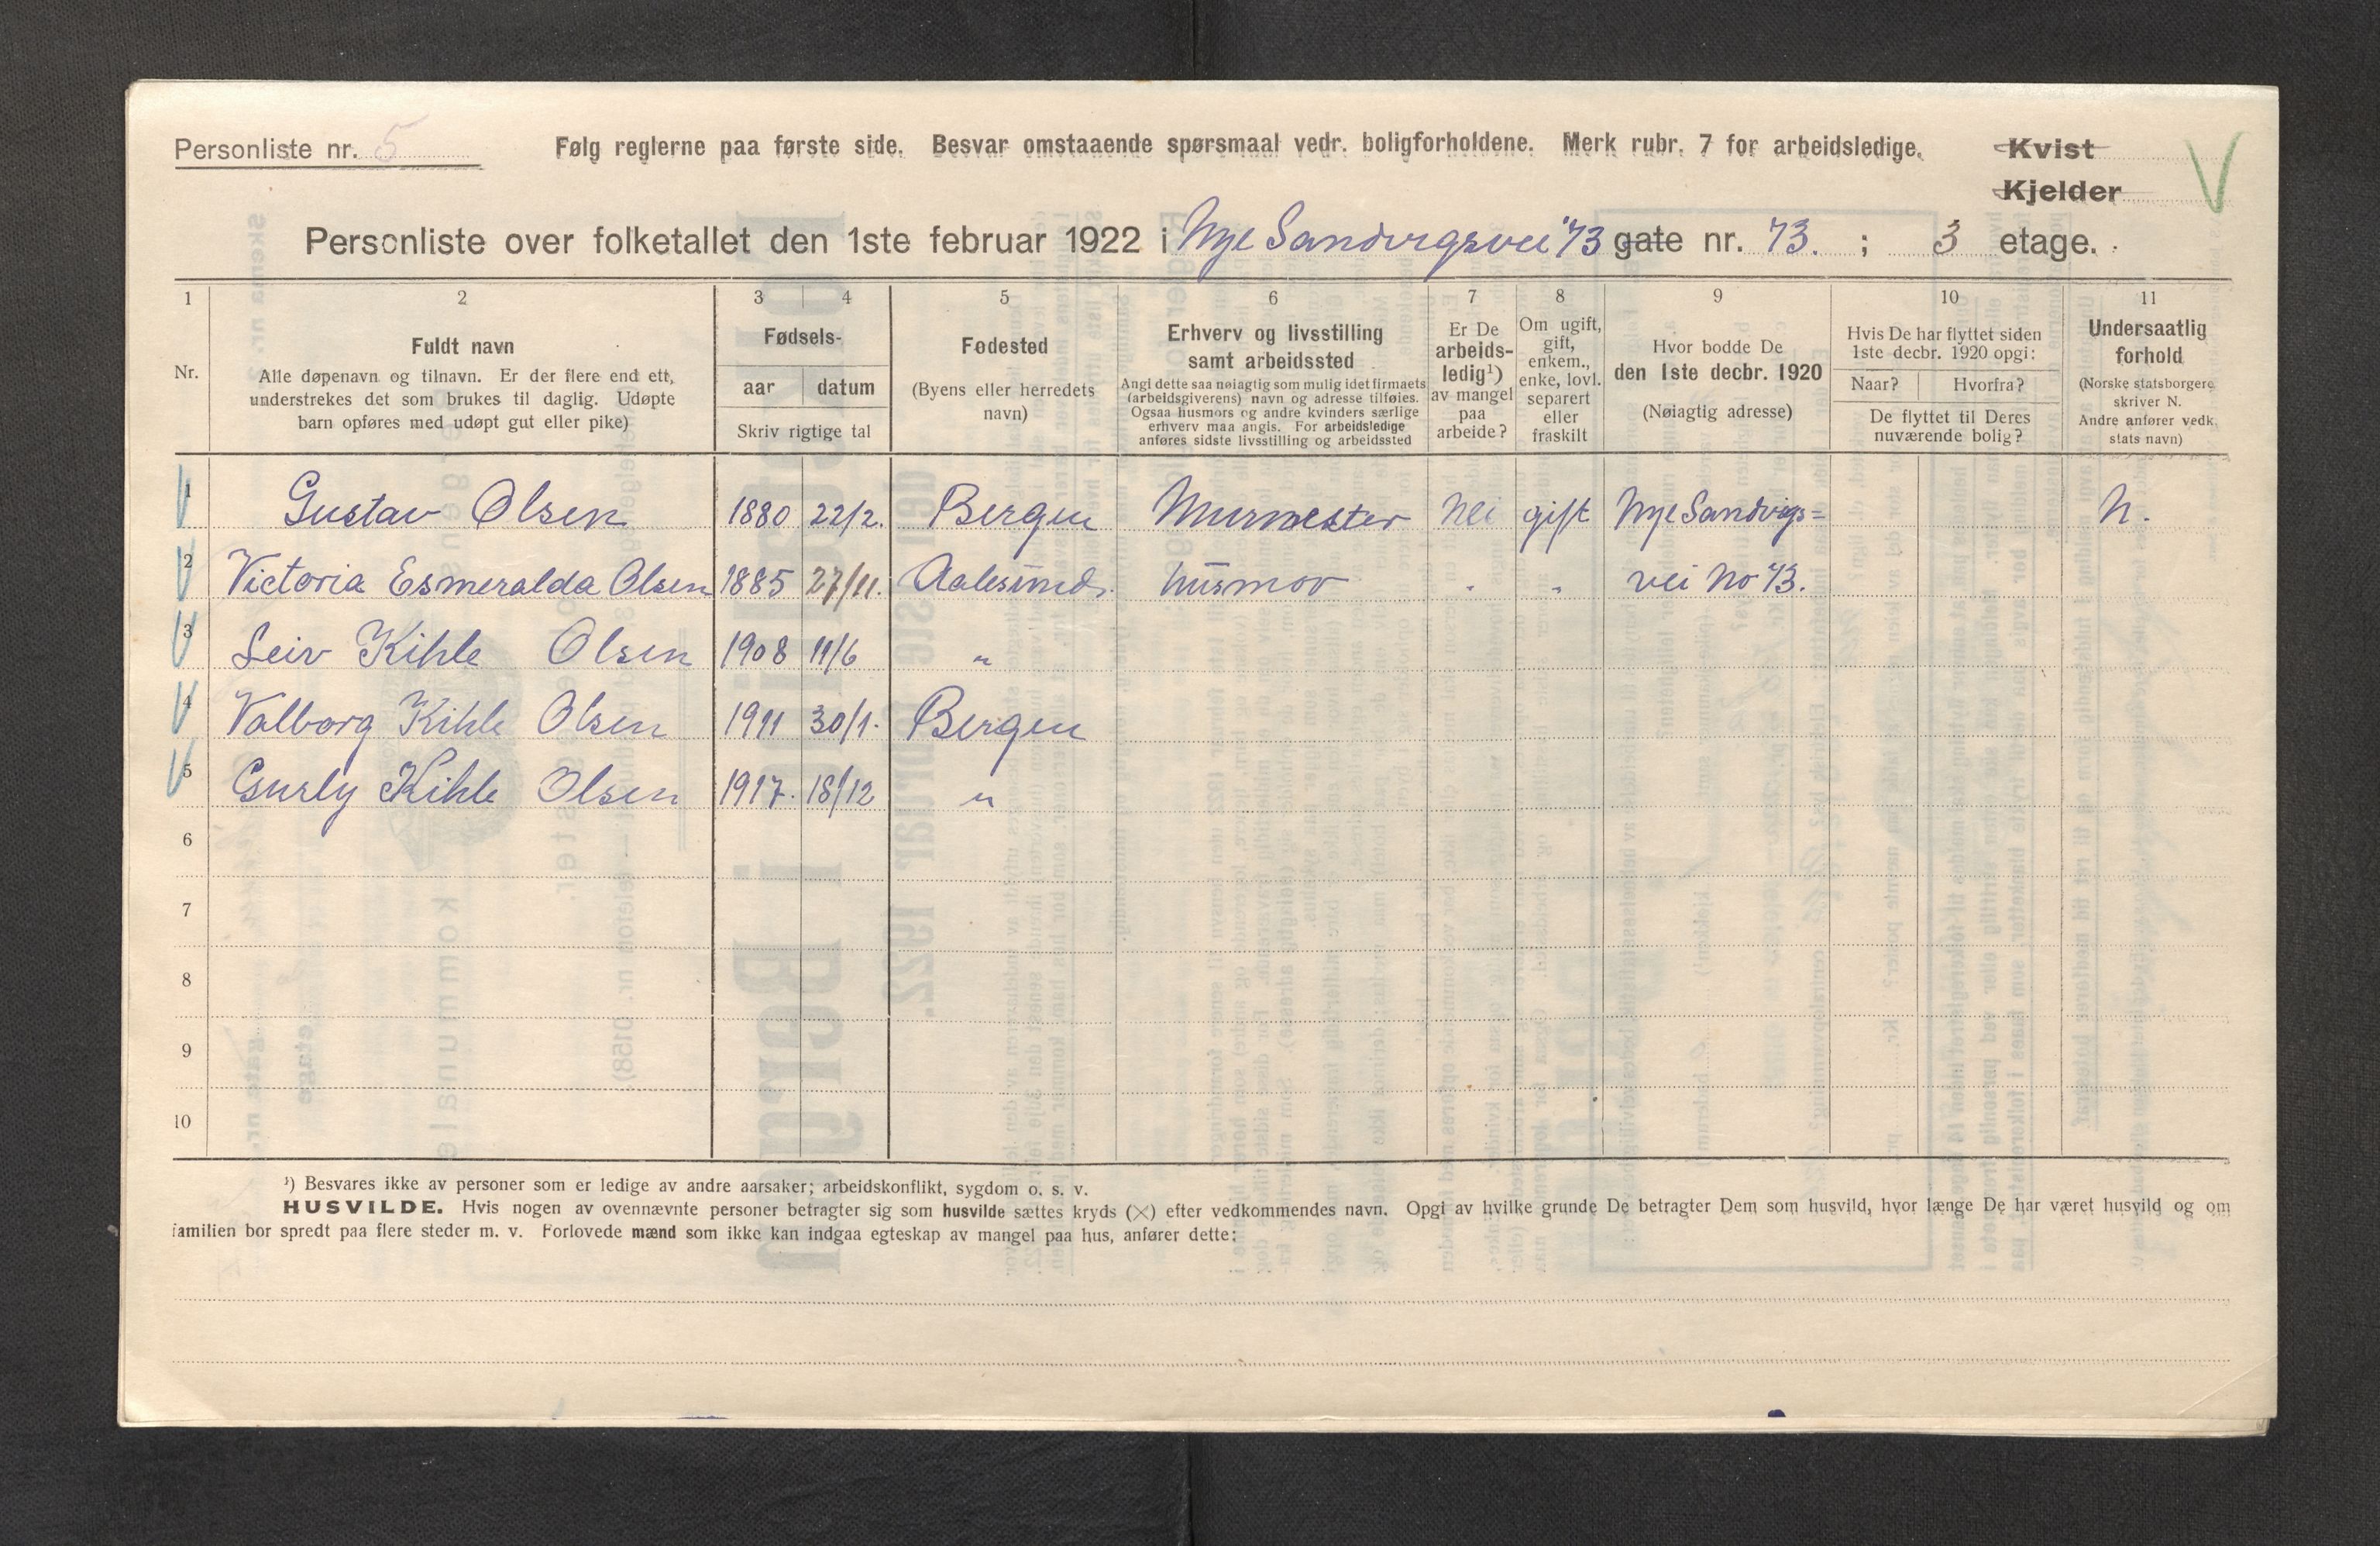 Personliste nr. 5
Følg reglerne paa første side. Besvar omstaaende spørsmaal vedr. boligforholdene. Merk rubr. 7 for arbeidsledige.
Kvist
Kjelder
Personliste over folketallet den 1ste februar 1922 i Nye Sandvigsvei 73 gate nr. 73. ; 3 etage.
1 2 3 4 5 6 7 8 9 10 11
Nr.
Fuldt navn
Alle døpenavn og tilnavn. Er der flere end ett,
understrekes det som brukes til daglig. Udøpte
barn opføres med udøpt gut eller pike)
Fødsels-
aar datum
Skriv rigtige tal
Fødested
(Byens eller herredets
navn)
Erhverv og livsstilling
samt arbeidssted
Angi dette saa nøiagtig som mulig idet firmaets
(arbeidsgiverens) navn og adresse tilføies.
Ogsaa husmors og andre kvinders særlige
erhverv maa angis. For arbeidsledige
anføres sidste livsstilling og arbeidssted
Er De
arbeids-
ledig¹)
av mangel
paa
arbeide?
Om ugift,
gift,
enkem.,
enke, lovl.
separert
eller
fraskilt
Hvor bodde De
den 1ste decbr. 1920
(Nøiagtig adresse)
Hvis De har flyttet siden
1ste decbr. 1920 opgi:
Naar? Hvorfra?
De flyttet til Deres
nuværende bolig?
Undersaatlig
forhold
(Norske statsborgere
skriver N.
Andre anfører vedk.
stats navn)
1 Gustav Olsen 1880 22/2. Bergen Murmester Nei gift Nye Sandvigs=
N.
2 Victoria Esmeralda Olsen 1885 27/11. Aalesund. husmor " " vei No 73.
3 Leiv Kihle Olsen 1908 11/6 "
4 Valborg Kihle Olsen 1911 30/1. Bergen
5 Gurly Kihle Olsen 1917. 18/12 "
6
7
8
9
10
¹) Besvares ikke av personer som er ledige av andre aarsaker; arbeidskonflikt, sygdom o. s. v.
HUSVILDE. Hvis nogen av ovennævnte personer betragter sig som husvilde sættes kryds (×) efter vedkommendes navn. Opgi av hvilke grunde De betragter Dem som husvild, hvor længe De har været husvild og om
familien bor spredt paa flere steder m. v. Forlovede mænd som ikke kan indgaa egteskap av mangel paa hus, anfører dette: